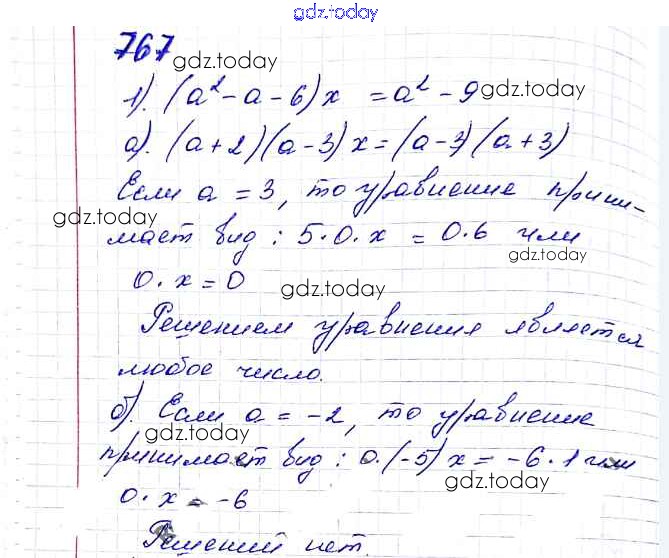 gdz.today
767
gdz.today
1). (a² - a - 6) x = a² - 9
gdz.today
a). (a + 2)(a - 3) x = (a - 3)(a + 3)
Если a = 3, то уравнение прини-
gdz.today
мает вид : 5·0·x = 0·6 или
gdz.today
0·x = 0
gdz.today
Решением уравнения является
любое число.
б). Если a = -2, то уравнение
gdz.today
принимает вид : 0·(-5) x = -6·1 или
gdz.today
0·x = -6
Решений нет.